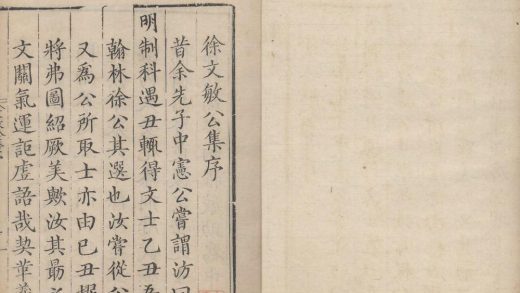 徐文敏公集序
昔余先子中憲公嘗謂汸曰
明制科遇丑輒得文士乙丑吾
翰林徐公其選也汝嘗從公
又為公所取士亦由已丑擢
將弗圖紹厥美歟汝其最
文關氣運詎虛語哉契華